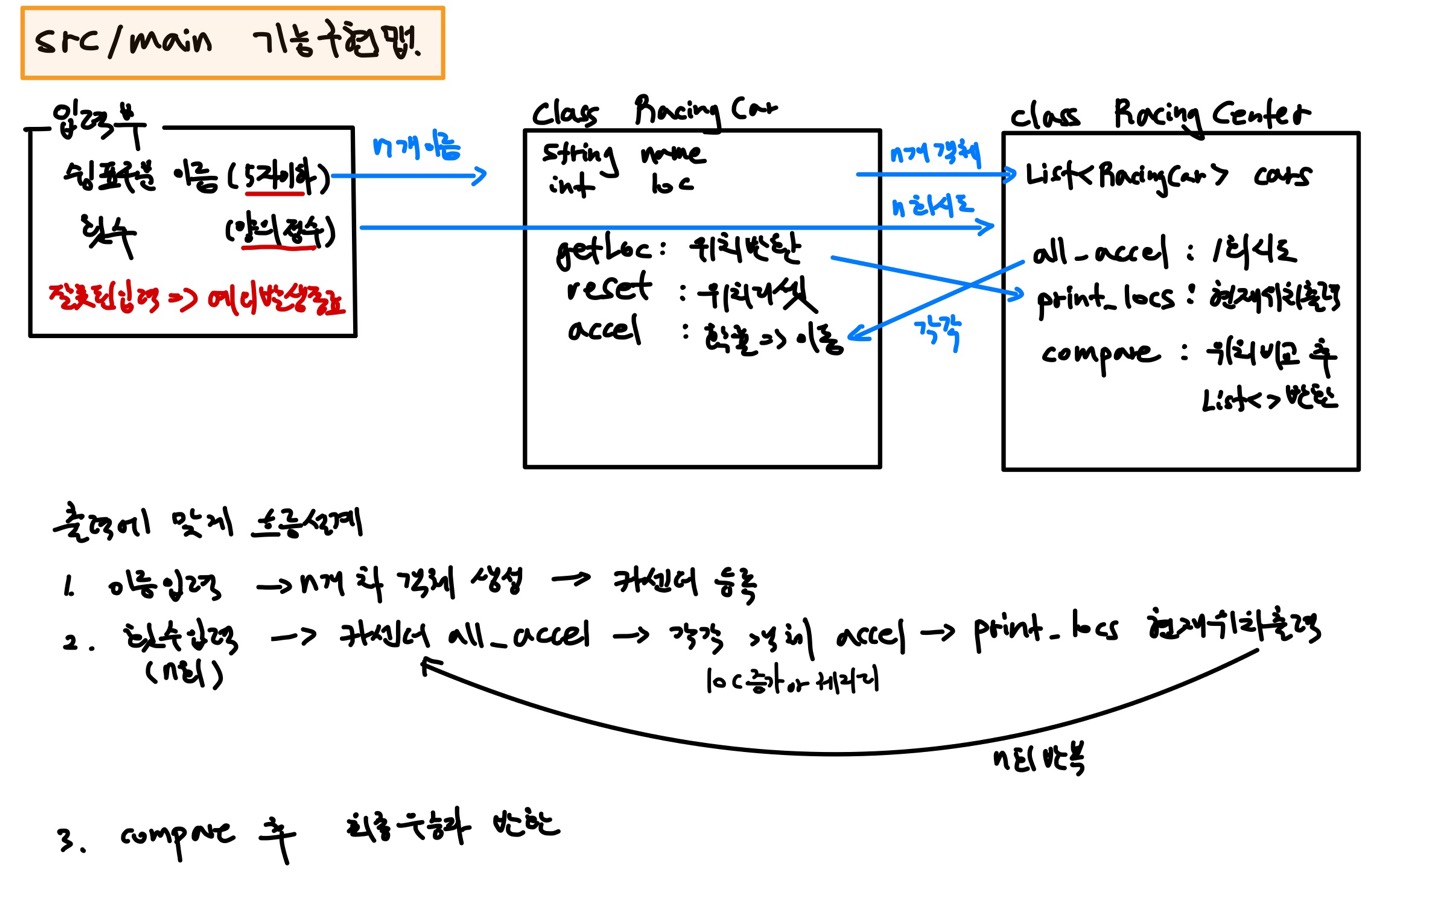 src/main 기능구현맵.
입력부
쉼표구분 이름 (5자이하)
횟수 (양의정수)
잘못된입력 => 에러발생종료
n개이름
class Racing Car
string name
int loc
getLoc : 위치반환
reset : 위치리셋
accel : 확률 => 이동
n개객체
n회시도
각각
class Racing Center
List<RacingCar> cars
all_accel : 1회시도
print_locs : 현재위치출력
compare : 위치비교 후
List<>반환
출력에 맞게 흐름설계
1. 이름입력 → n개 차 객체 생성 → 카센터 등록
2. 횟수입력 → 카센터 all_accel → 각각 객체 accel → print_locs 현재위치출력
(n회)
loc증가
n회 반복
3. compare 후 최종우승자 반환